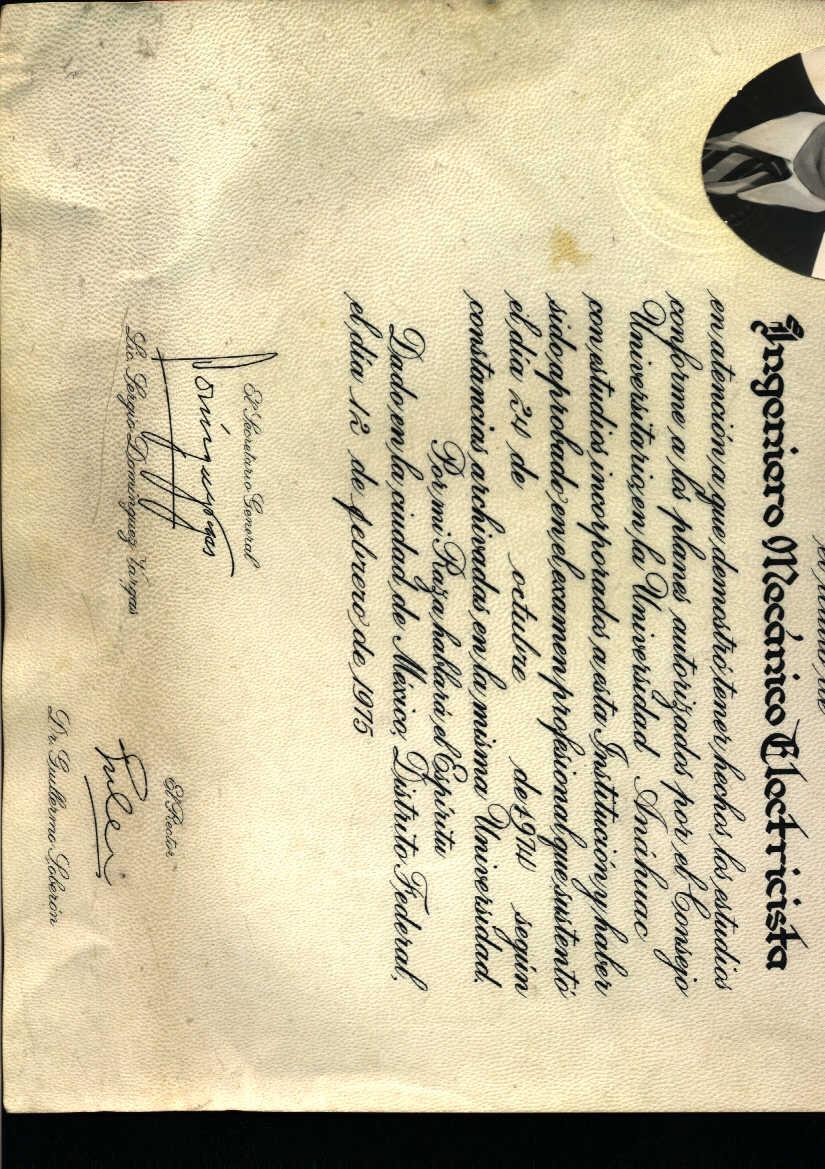 el título de
Ingeniero Mecánico Electricista
en atención a que demostró tener hechos los estudios
conforme a los planes autorizados por el Consejo
Universitario, en la Universidad Anáhuac
con estudios incorporados a esta Institución y haber
sido aprobado en el examen profesional que sustentó
el día 24 de octubre de 1974 según
constancias archivadas en la misma Universidad.
Por mi Raza hablará el Espíritu
Dado en la ciudad de México, Distrito Federal,
el día 12 de febrero de 1975
El Secretario General
Lic. Sergio Domínguez Vargas
El Rector
Dr. Guillermo Soberón